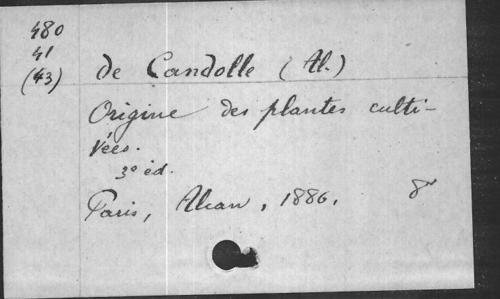 480
41
(43) de Candolle (Al.)
Origine des plantes culti-
vées.
3e éd.
Paris, Alcan, 1886. 8°